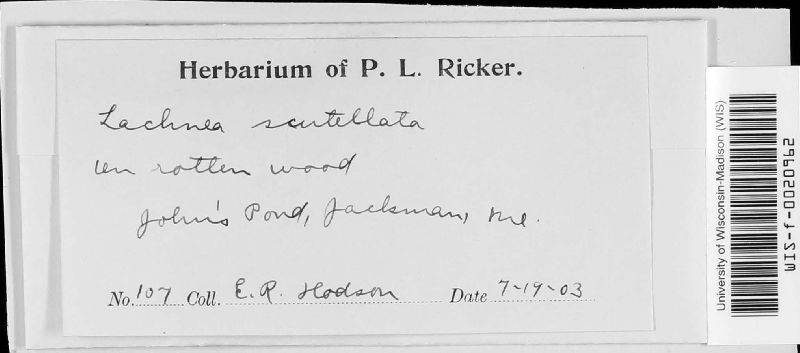 Herbarium of P. L. Ricker.
Lachnea scutellata
on rotten wood
John's Pond, Jackman, Me.
No. 107 Coll. E. R. Hodson Date 7-19-03
University of Wisconsin-Madison (WIS)
WIS-f-0020962